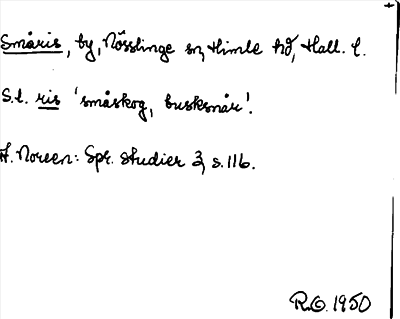 Småris, by, Nösslinge sn, Himle hd, Hall. l.
S.l. ris 'småskog, busksnår'.
A. Noreen: Spr. studier 3, s. 116.
R.O. 1950